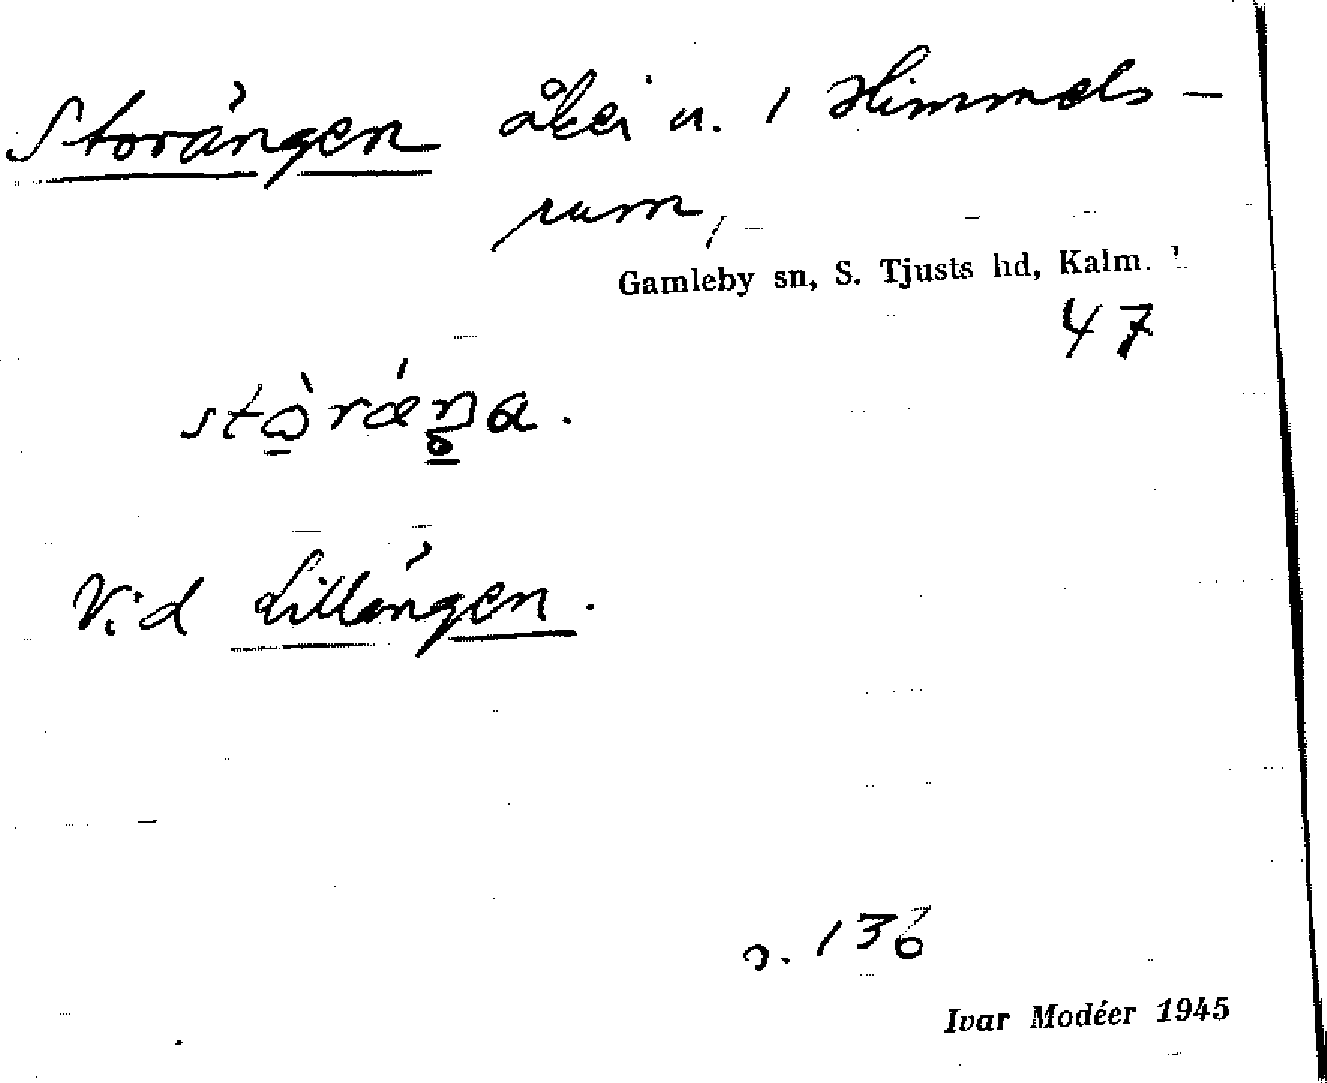 Storängen åker n. i Himmels-
rum,
Gamleby sn, S. Tjusts hd, Kalm. l
47
stòrǽŋa.
Vid Lillängen.
s. 136
Ivar Modéer 1945